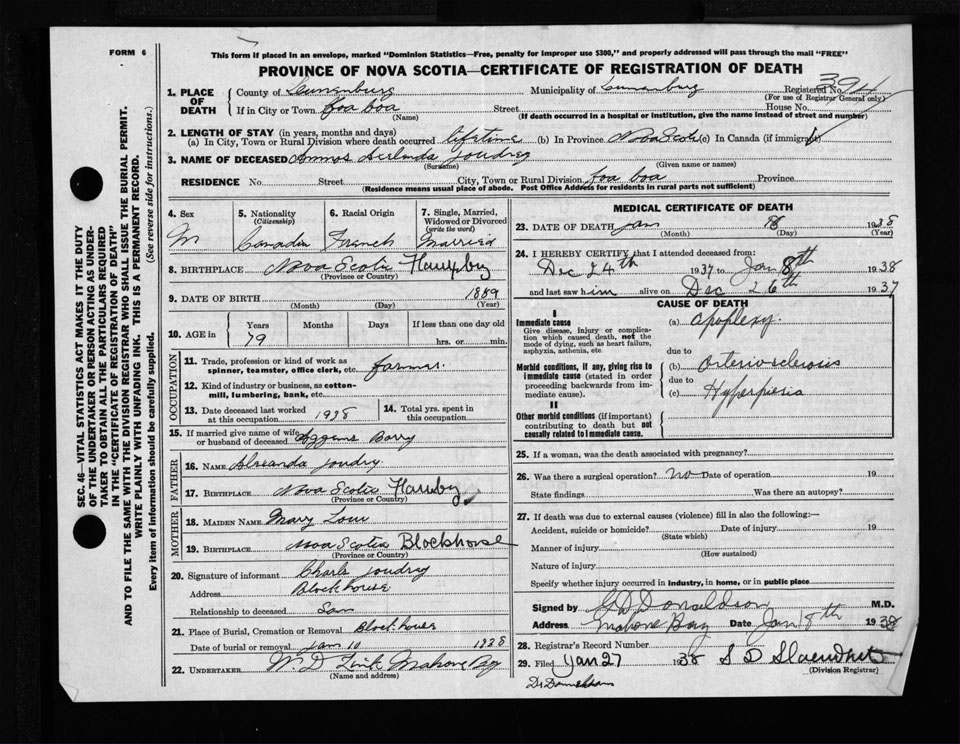 FORM 6
This form if placed in an envelope, marked "Dominion Statistics—Free, penalty for improper use $300," and properly addressed will pass through the mail "FREE"
PROVINCE OF NOVA SCOTIA—CERTIFICATE OF REGISTRATION OF DEATH
SEC. 46—VITAL STATISTICS ACT MAKES IT THE DUTY
OF THE UNDERTAKER OR PERSON ACTING AS UNDER-
TAKER TO OBTAIN ALL THE PARTICULARS REQUIRED
IN THE "CERTIFICATE OF REGISTRATION OF DEATH"
AND TO FILE THE SAME WITH THE DIVISION REGISTRAR WHO SHALL ISSUE THE BURIAL PERMIT.
WRITE PLAINLY WITH UNFADING INK. THIS IS A PERMANENT RECORD.
Every item of information should be carefully supplied. (See reverse side for instructions.)
1. PLACE OF DEATH
County of Lunenburg Municipality of Lunenburg Registered No. 394
(For use of Registrar General only)
If in City or Town Street House No.
(Name) (If death occurred in a hospital or institution, give the name instead of street and number)
2. LENGTH OF STAY (in years, months and days)
(a) In City, Town or Rural Division where death occurred lifetime (b) In Province Nova Scotia (c) In Canada (if immigrant)
3. NAME OF DECEASED Joudrey
(Surname) (Given name or names)
RESIDENCE No. Street City, Town or Rural Division Province
(Residence means usual place of abode. Post Office Address for residents in rural parts not sufficient)
4. Sex M
5. Nationality (Citizenship) Canadin
6. Racial Origin French
7. Single, Married, Widowed or Divorced (write the word) Married
8. BIRTHPLACE Nova Scotia
(Province or Country)
9. DATE OF BIRTH 1889
(Month) (Day) (Year)
10. AGE in Years Months Days If less than one day old
79 hrs. or min.
OCCUPATION
11. Trade, profession or kind of work as spinner, teamster, office clerk, etc. farmer.
12. Kind of industry or business, as cotton-mill, lumbering, bank, etc.
13. Date deceased last worked at this occupation 1938
14. Total yrs. spent in this occupation
15. If married give name of wife or husband of deceased
FATHER
16. NAME Joudry
17. BIRTHPLACE Nova Scotia
(Province or Country)
MOTHER
18. MAIDEN NAME Mary
19. BIRTHPLACE Nova Scotia Blockhouse
(Province or Country)
20. Signature of informant Charls Joudrey
Address Blockhouse
Relationship to deceased Son
21. Place of Burial, Cremation or Removal Blockhouse
Date of burial or removal Jan 10 1938
22. UNDERTAKER W. D. Zink Mahone Bay
(Name and address)
MEDICAL CERTIFICATE OF DEATH
23. DATE OF DEATH Jan 8 1938
(Month) (Day) (Year)
24. I HEREBY CERTIFY that I attended deceased from:
Dec 24th 1937 to Jan 8th 1938
and last saw him alive on Dec 26th 1937
CAUSE OF DEATH
I
Immediate cause (a) Apoplexy.
Give disease, injury or complication which caused death, not the mode of dying, such as heart failure, asphyxia, asthenia, etc.
due to
Morbid conditions, if any, giving rise to immediate cause (stated in order proceeding backwards from immediate cause).
(b) Arteriosclerosis
due to
(c) Hyperpiesia
II
Other morbid conditions (if important) contributing to death but not causally related to immediate cause.
25. If a woman, was the death associated with pregnancy?
26. Was there a surgical operation? no Date of operation 19
State findings Was there an autopsy?
27. If death was due to external causes (violence) fill in also the following:—
Accident, suicide or homicide? Date of injury 19
(State which)
Manner of injury
(How sustained)
Nature of injury
Specify whether injury occurred in industry, in home, or in public place
Signed by Donaldson M.D.
Address Mahone Bay Date Jan 18th 1938
28. Registrar's Record Number
29. Filed Jan 27 1938 S D
(Division Registrar)
Dr Donaldson